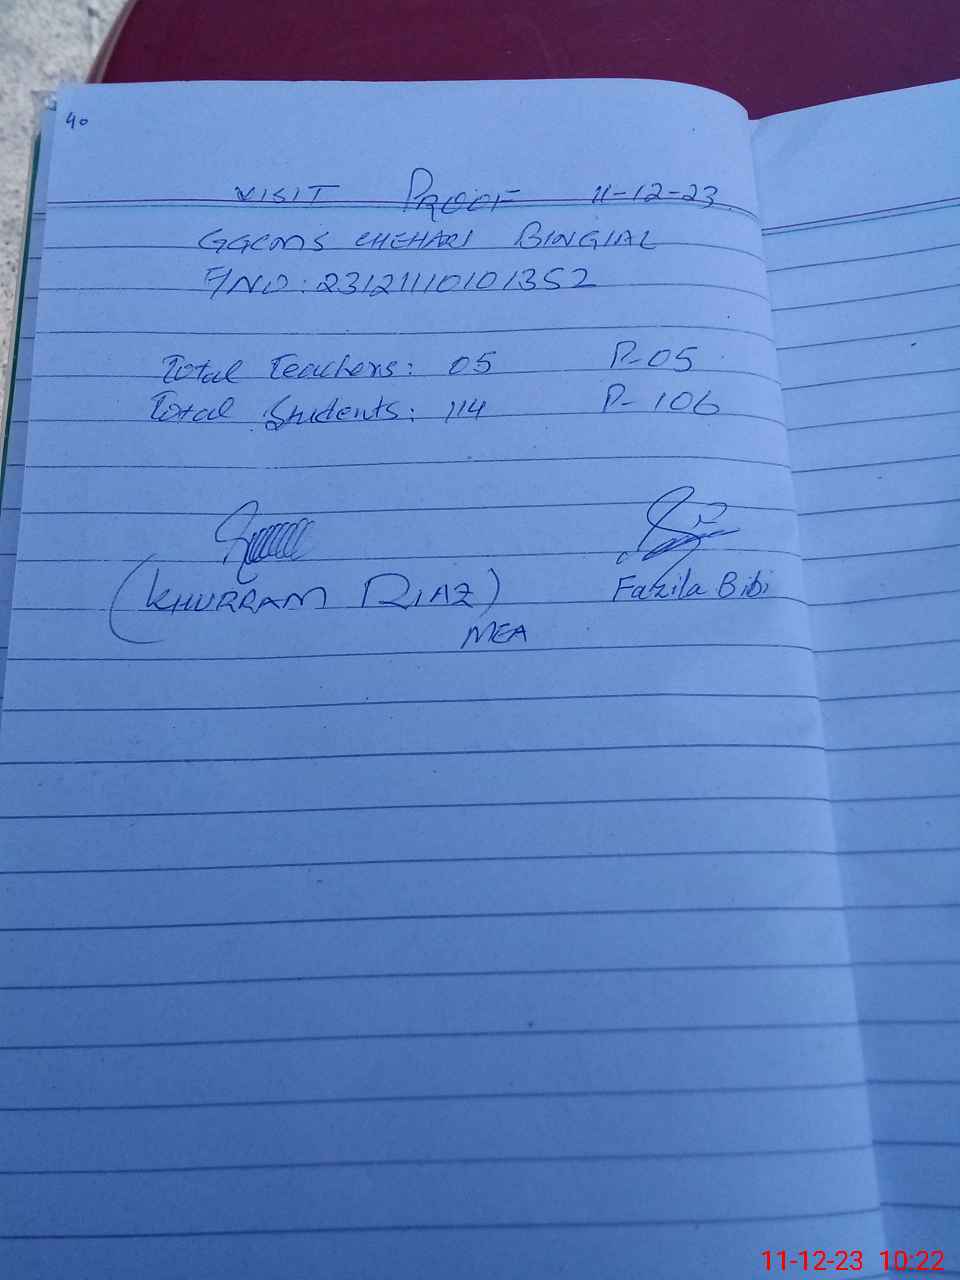 40
VISIT PROOF 11-12-23
GGCMS CHEHARI BINGIAL
F/NO: 23121110101352
Total Teachers: 05 P-05
Total Students: 114 P-106
(KHURRAM RIAZ) Fazila Bibi
MEA
11-12-23 10:22